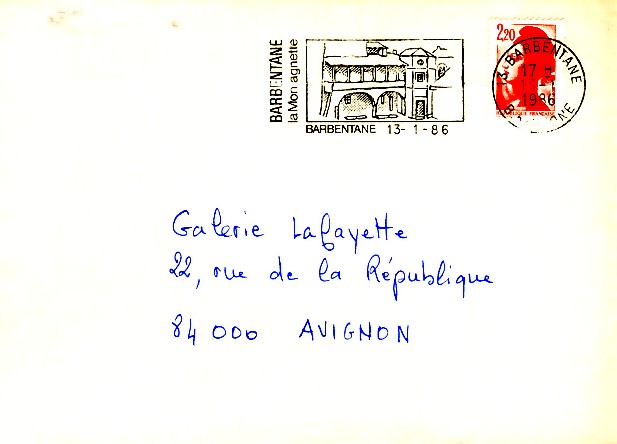 BARBENTANE
la Montagnette
BARBENTANE 13-1-86
2,20
13 BARBENTANE
17 H
1986
RÉPUBLIQUE FRANÇAISE
Galerie Lafayette
22, rue de la République
84 000 AVIGNON